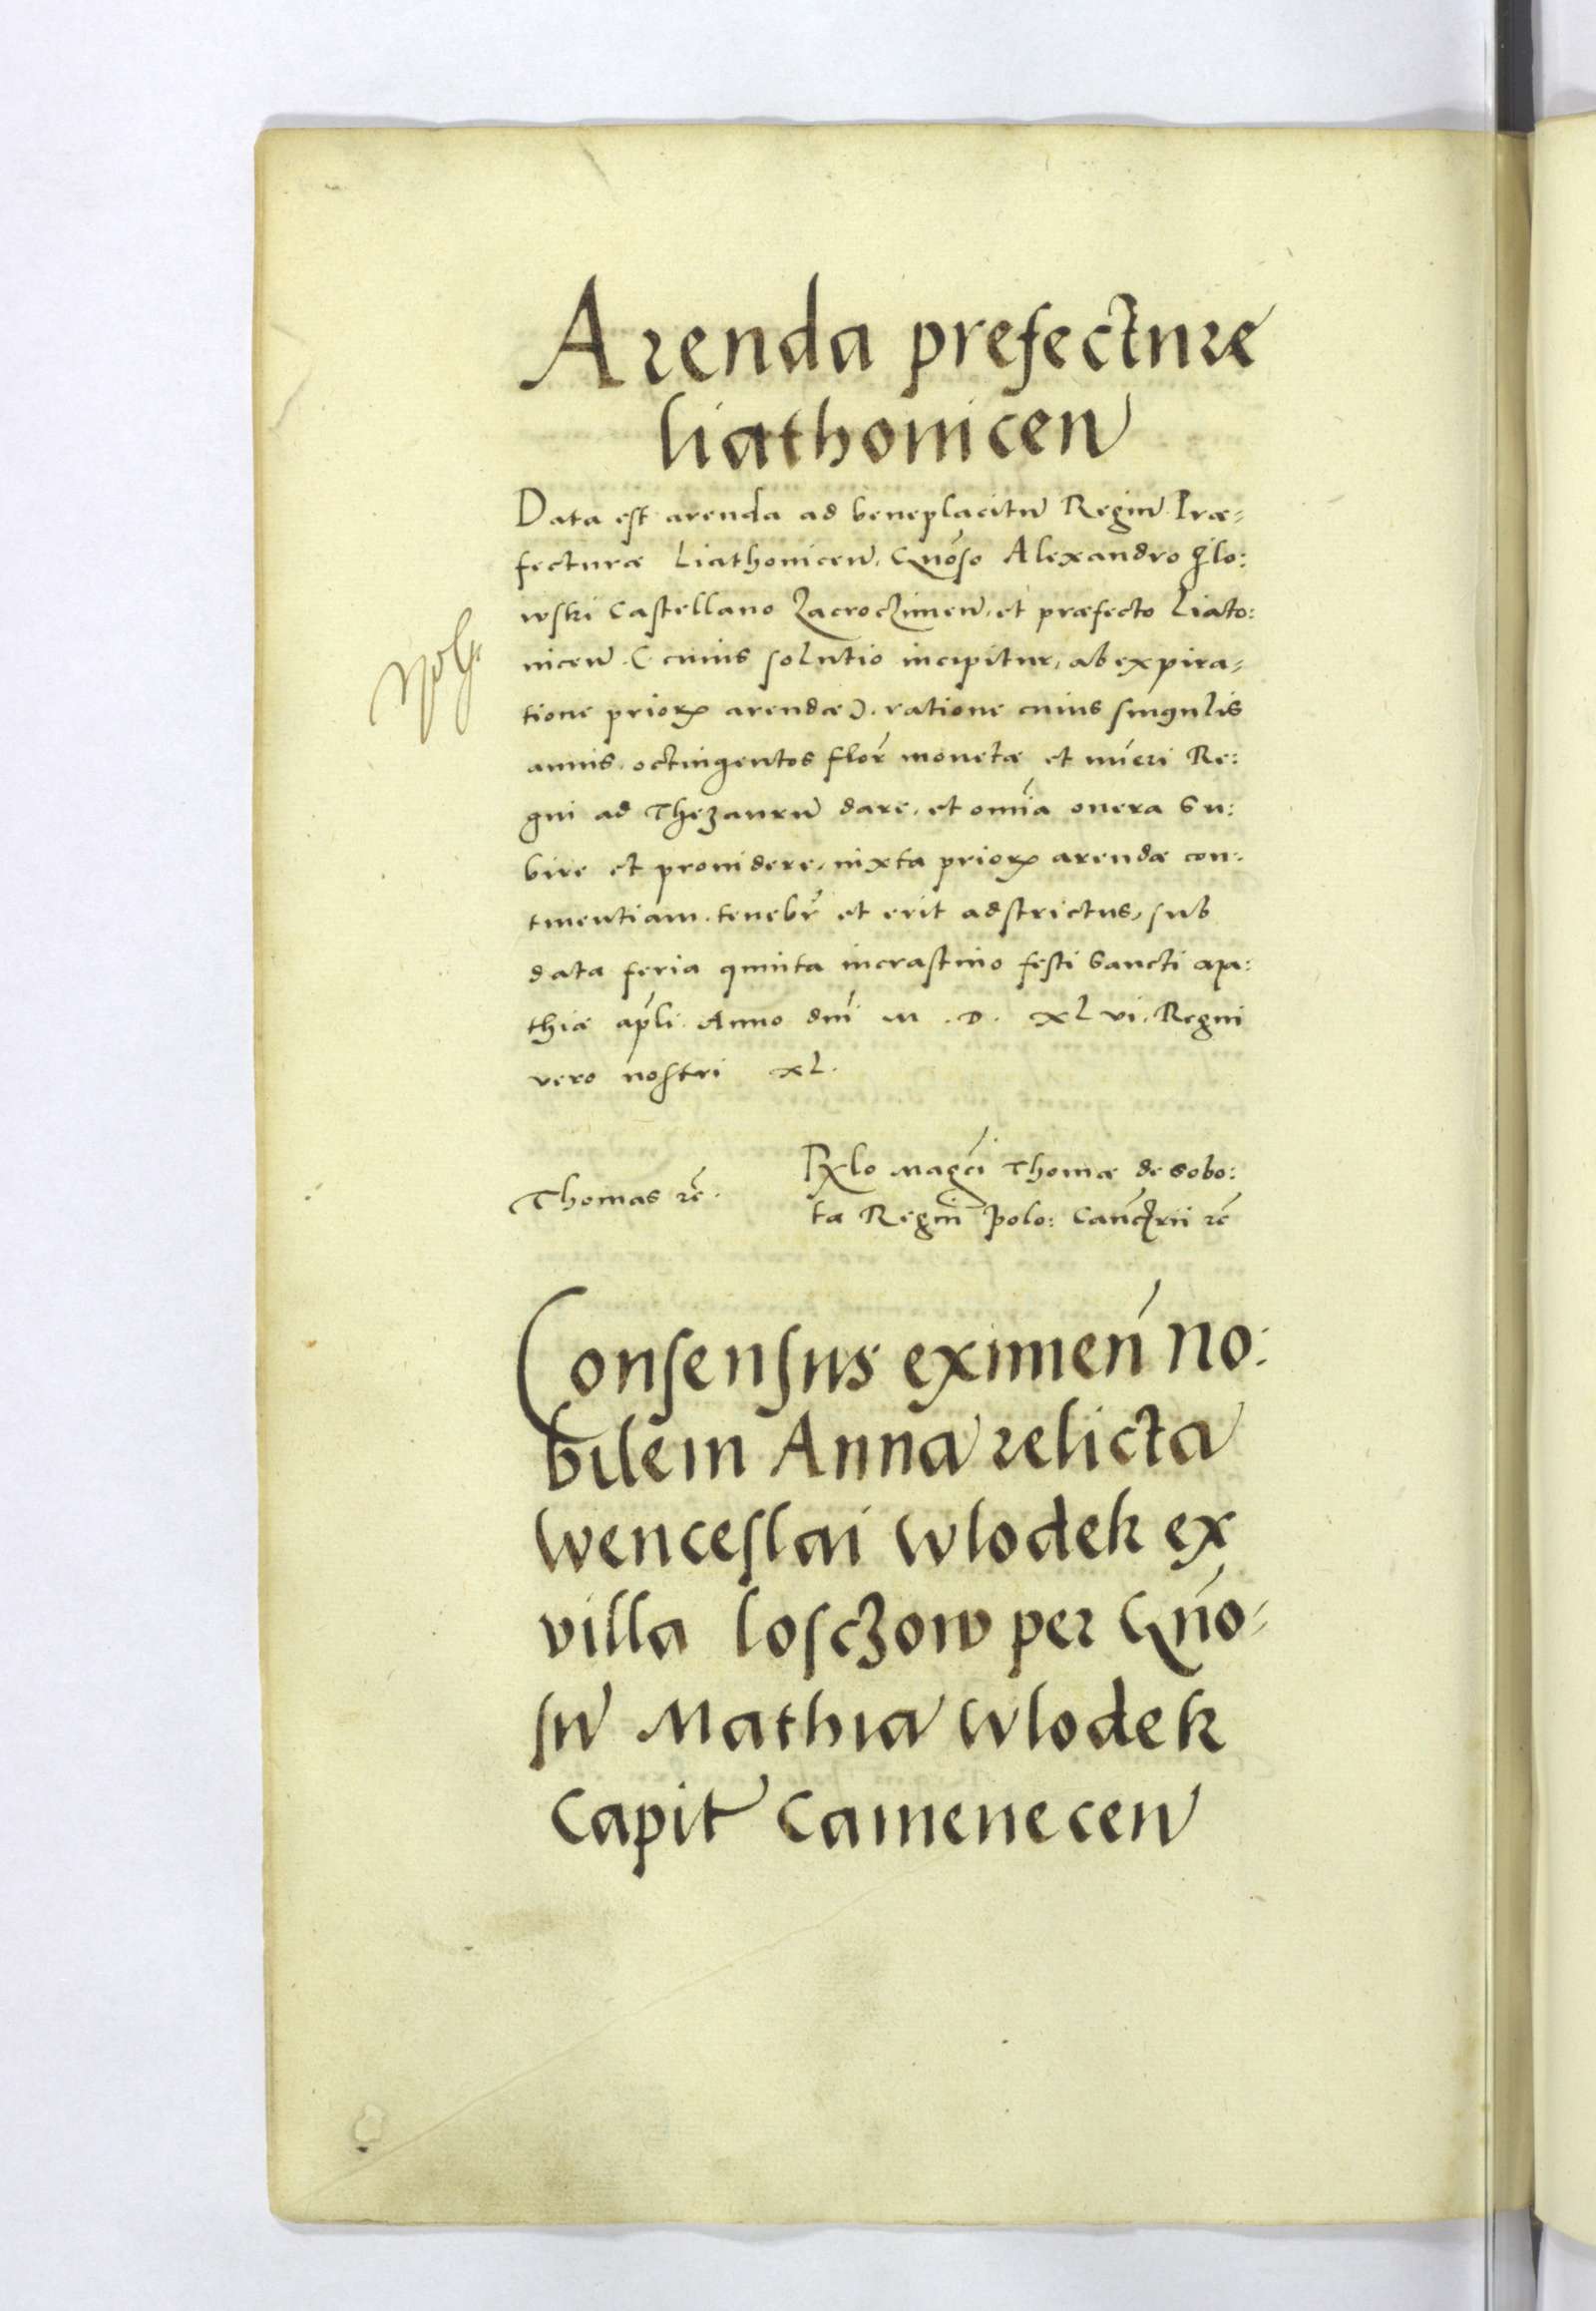 Arenda prefecture
liathonicen
Data est arenda ad beneplacitu Regiu Præ-
fecturæ Liathonicen, Gnoso Alexandro Ilo:
wski Castellano Zacroczimen, et præfecto Liato:
nicen. (cuius solutio incipitur, ab expira-
tione prior arendæ). ratione cuius singulis
annis. octingentos flor monetæ et nueri Re:
gni ad Thezauru dare, et omia onera Su:
bire et providere, iuxta prior arendæ con-
tinentiam. tenebr et erit adstrictus, sub
data feria quinta incrastino festi Sancti Ma:
thiæ apli. Anno dni M. D. XL vi. Regni
vero nostri XL.
Rlo Magci Thomæ de Sobo:
Thomas rē.
ta Regni Polo: Cancrii rē
Consensus eximen no:
bilem Anna relicta
Wenceslai Wlodek ex
villa Losczow per Gno-
su Mathia Wlodek
Capit Camenecen